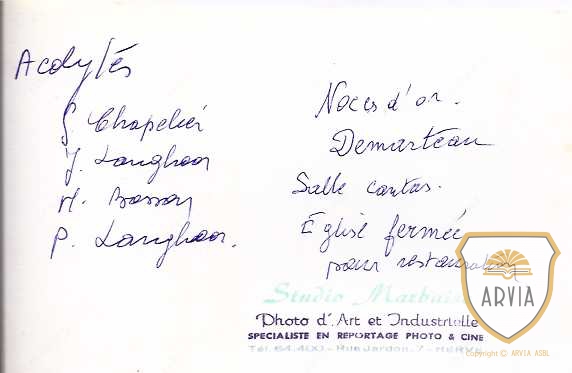 Acolytes
G. Chapelier
J. Langhoor
M. Bosson
P. Langhoor.
Noces d'or.
Demarteau
Salle cantas.
Église fermée
pour restauration
Studio
Photo d'Art et Industrielle
SPECIALISTE EN REPORTAGE PHOTO & CINE
Tél. 64.400 - Rue Jardon, 7 - HERVE
ARVIA
Copyright © ARVIA ASBL